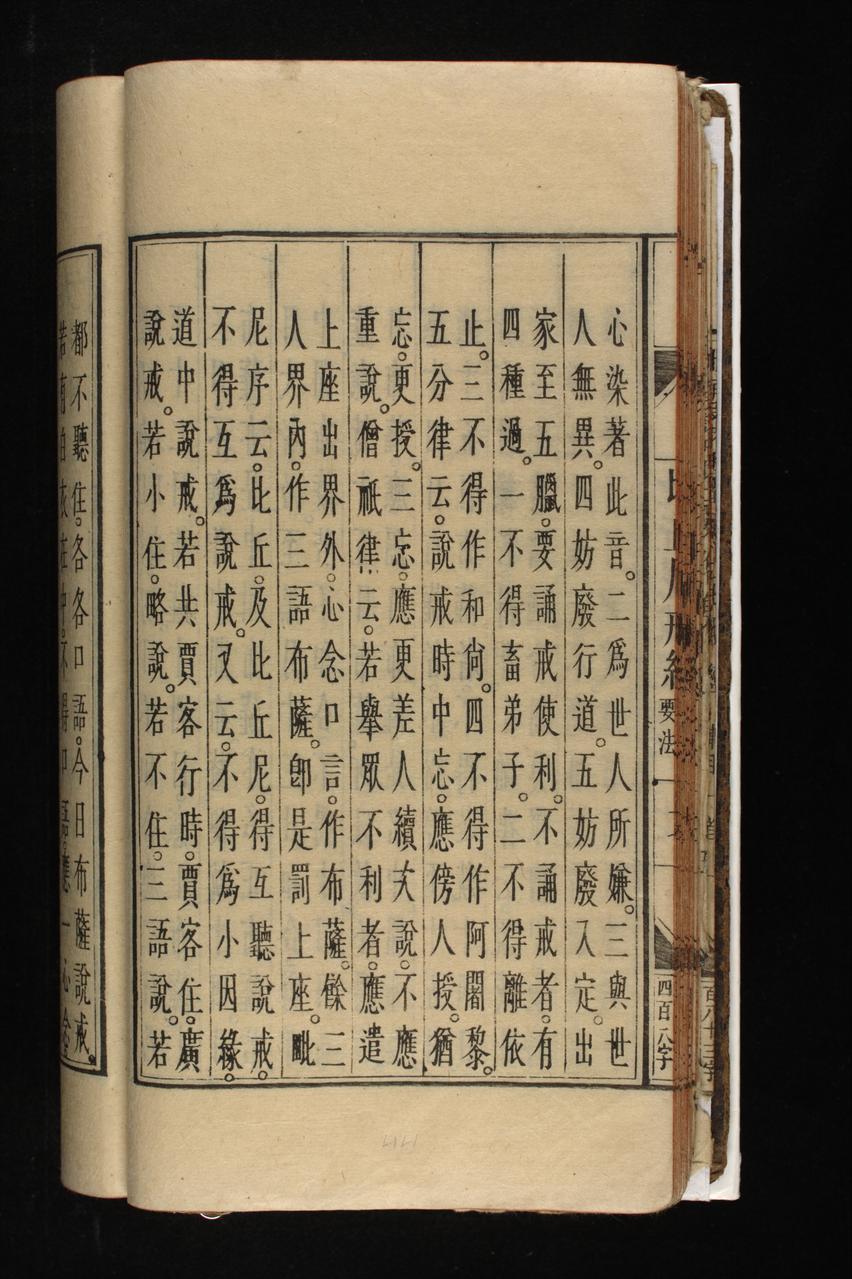 心染著此音。二爲世人所嫌。三與世
人無異。四妨廢行道。五妨廢入定。出
家至五臘。要誦戒使利。不誦戒者。有
四種過。一不得畜弟子。二不得離依
止。三不得作和尙。四不得作阿闍黎。
五分律云。說戒時中忘。應傍人授。猶
忘。更授。三忘。應更差人續次說。不應
重說。僧祇律云。若舉眾不利者。應遣
上座出界外。心念口言。作布薩。餘三
人界內。作三語布薩。卽是罰上座。毗
尼序云。比丘。及比丘尼。得互聽說戒。
不得互爲說戒。又云。不得爲小因緣。
道中說戒。若共賈客行時。賈客住。廣
說戒。若小住。略說。若不住。三語說。若
都不聽住。各各口語。今日布薩說戒。
要法
四百八字